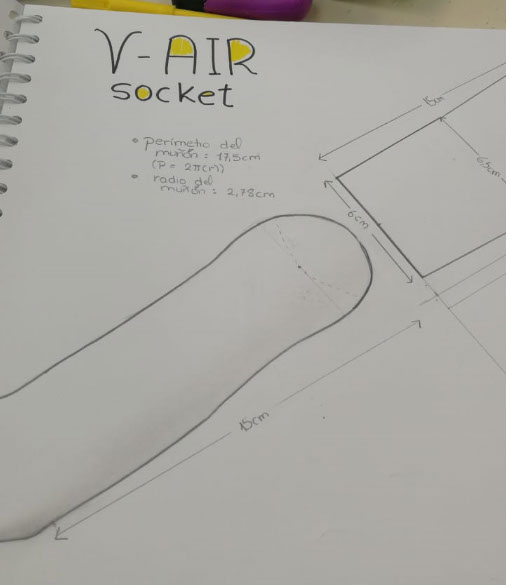 V-AIR
socket
• perímetro del
muñón: 17,5cm
(P = 2π(r))
• radio del
muñón: 2,78cm
15cm
6,5cm
6cm
15cm